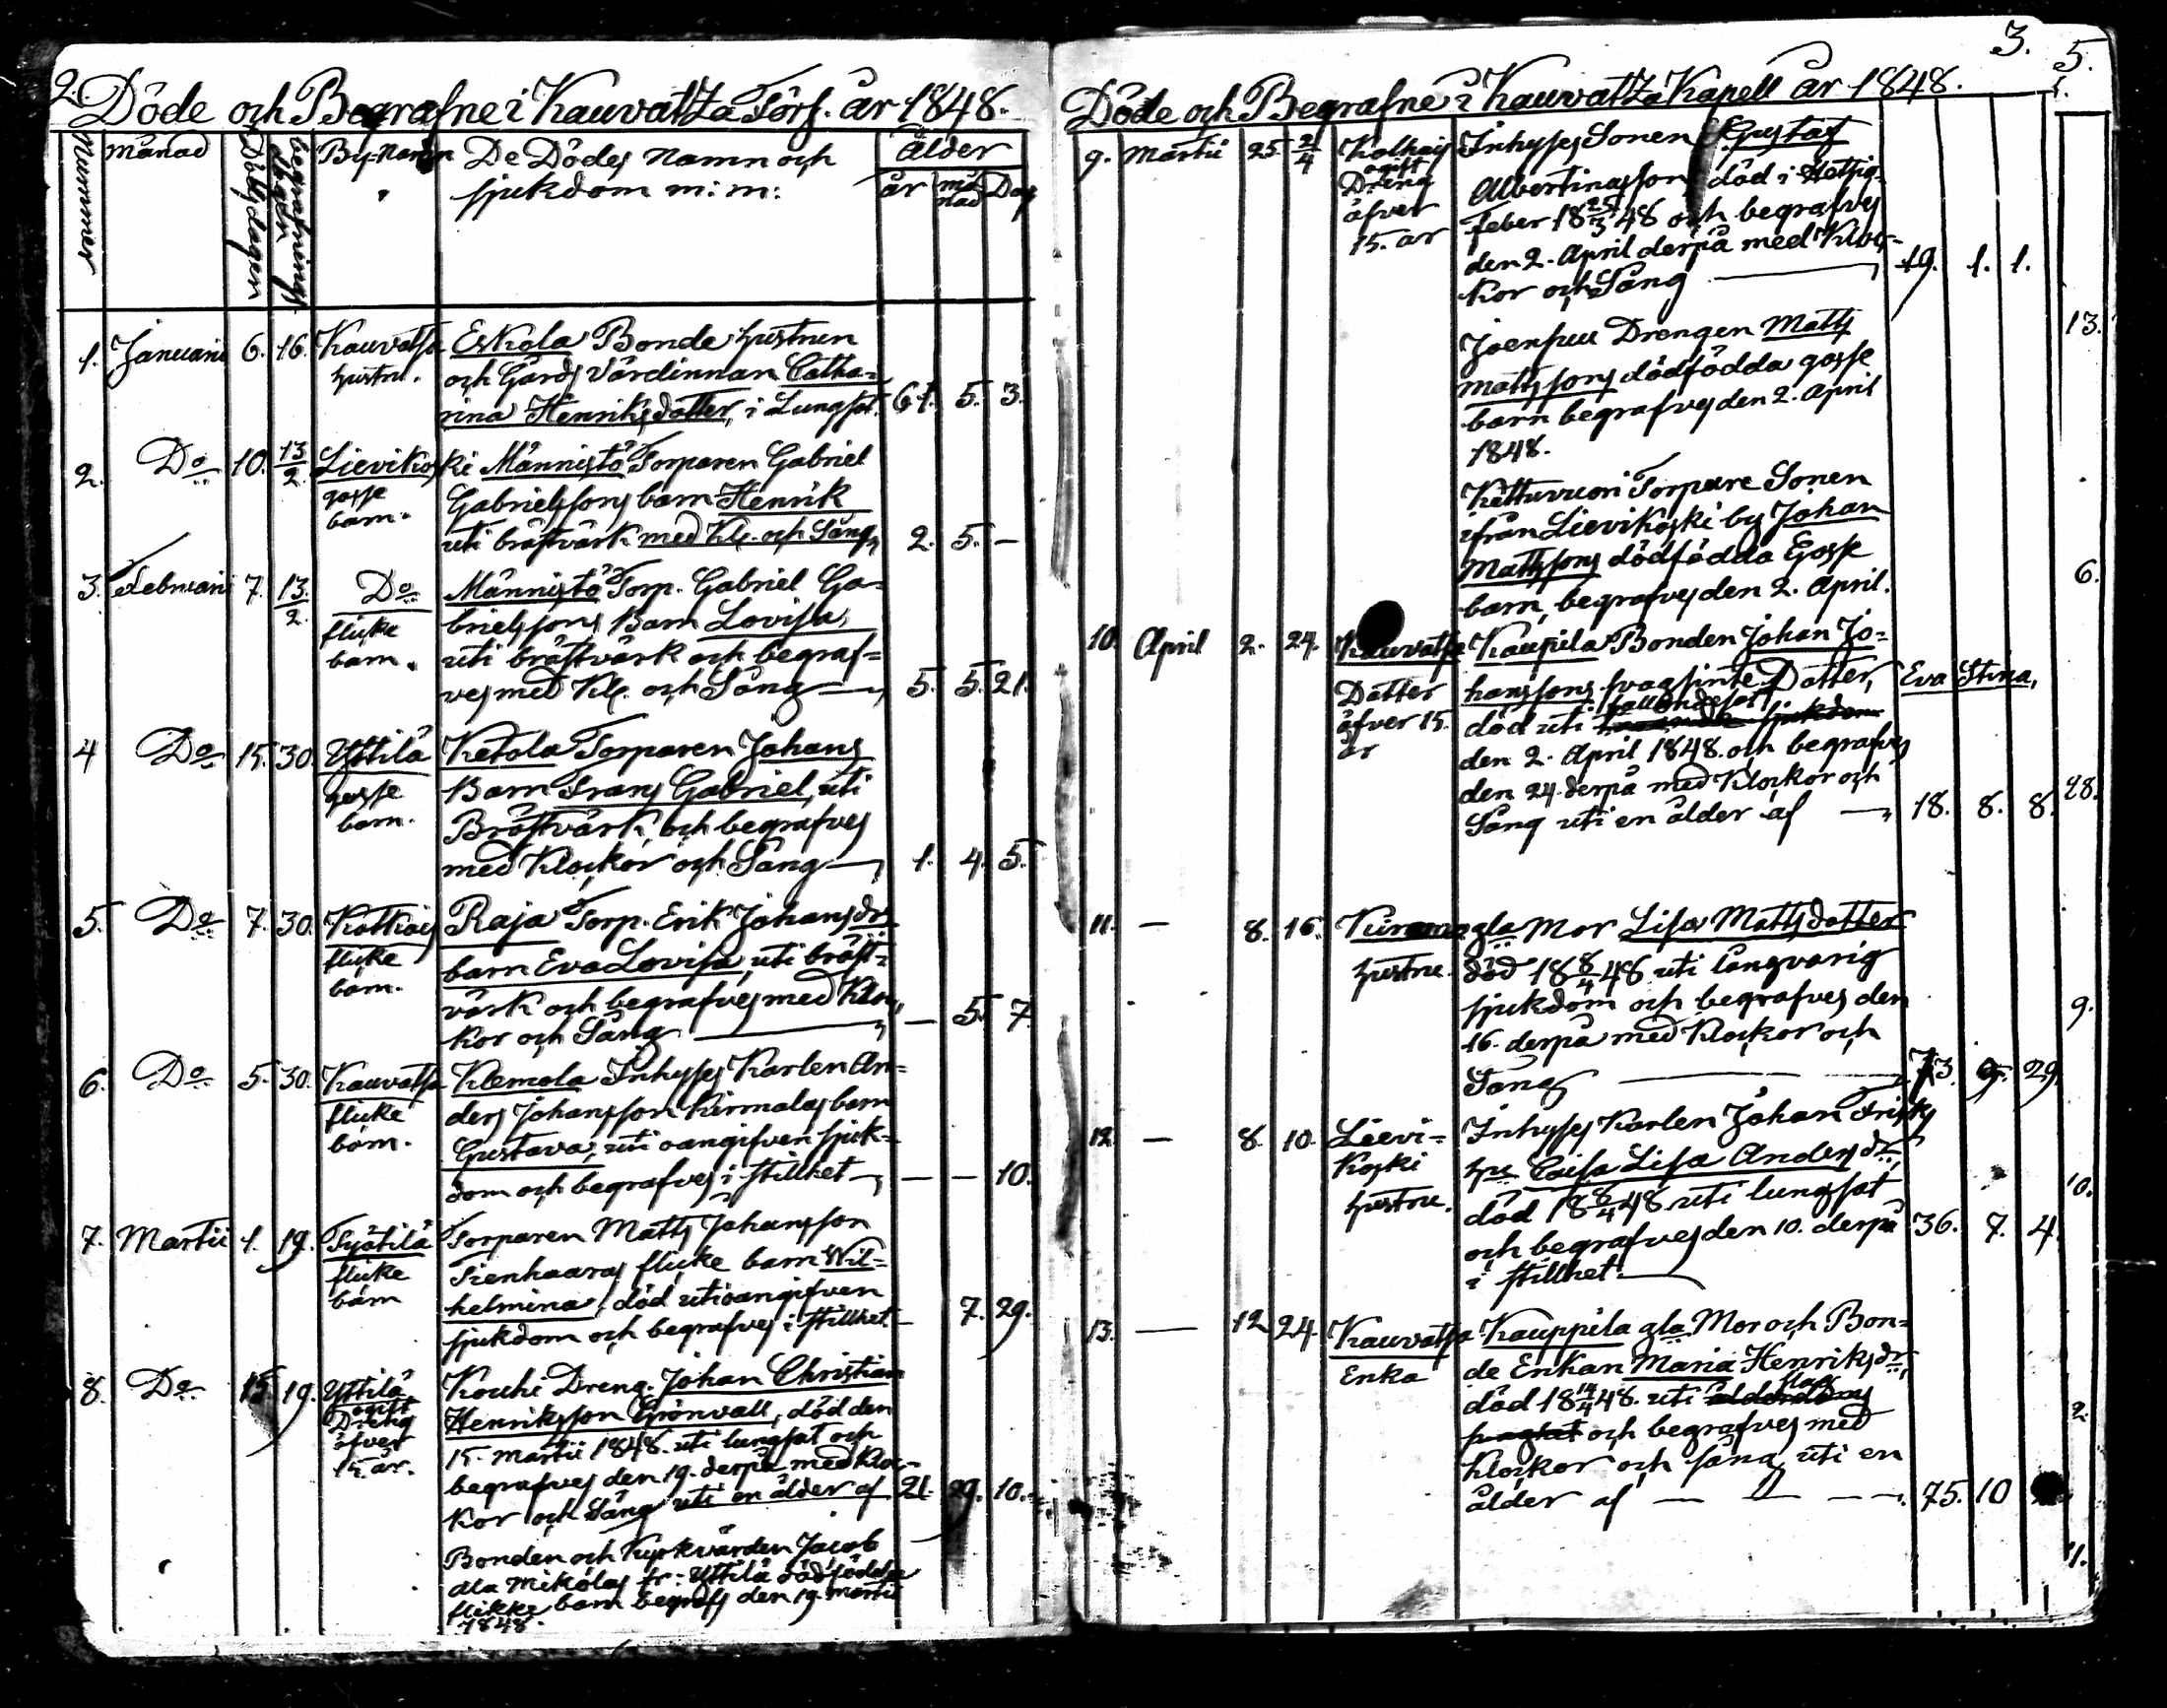 2. Döde och Begrafne i Kauvatza Förs. år 1848.
Nummer
Månad
Dödsdagen
begrafnings dagen
By=Namn
De Dödes Namn och
sjukdom m: m:
Ålder
år
må
nad
Dag
1. Januarii 6. 16. Kauvatsa Eskola Bonde hustrun
hustru. och Gårds Värdinnan Catha=
rina Henriksdotter, i Lungsot. 61. 5. 3.
2. Do 10. 13/2 Lievikoski Männistö Torparen Gabriel
gosse Gabrielssons barn Henrik
barn. uti bröstvärk med Kl. och Sång, 2. 5. —
3. Februarii 7. 13/2. Do Männistö Torp. Gabriel Ga=
flicke brielssons Barn Lovisa,
barn. uti bröstvärk och begraf=
ves med Kl. och Sång — 5. 5. 21.
4 Do 15. 30. Yttilä Ketola Torparen Johans
gosse Barn Frans Gabriel, uti
barn. Bröstvärk och begrafves
med Klockor och Sång — 1. 4. 5.
5. Do 7. 30. Kolkais Raja Torp. Erik Johans dr
flicke barn Eva Lovisa, uti bröst=
barn. värk och begrafves med Kloc,
kor och Sång — — 5. 7.
6. Do 5. 30. Kauvatsa Klemola Inhyses Karlen An=
flicke ders Johansson Kirmalas barn
barn. Gustava, uti oangifven sjuk=
dom och begrafves i stillhet — — — 10.
7. Martii 1. 19. Työtilä Torparen Matts Johansson
flicke Tienhaaras flicke barn Wil=
barn helmina, död uti oangifven
sjukdom och begrafves i stillhet — 7. 29.
8. Do 15. 19. Yttilä Kouhi Dreng. Johan Christian
ogift
Dreng Henriksson Grönvall, död den
öfver 15. Martii 1848. uti lungsot och
15. år. begrafves den 19. derpå med Kloc=
kor och Sång uti en ålder af 21. 29. 10.
Bonden och Kyrkvärden Jacob
dla Mikolas fr: Yttilä dödfödda
flicke barn begrafs den 19. Martii
1848.
3. 5.
Döde och Begrafne i Kauvatza Kapell år 1848. 1.
9. Martii 25. 2/4 Kolkais Inhyses Sonen Gustaf
ogift
Dreng Albertinasson, död i Hetsig=
öfver Feber 18 25/3 48 och begrafves
15. år den 2. April derpå med Kloc-
kor och Sång — 19. 1. 1.
Joensuu Drengen Matts 13.
Mattssons dödfödda gosse
barn begrafves den 2. April
1848.
Kettuvuori Torpare Sonen
ifrån Lievikoski by Johan
Mattssons dödfödda Gosse 6.
barn, begrafves den 2. April.
10. April 2. 24. Kauvatsa Kaupila Bonden Johan Jo=
Dotter hanssons svagsinte Dotter, Eva Stina,
öfver 15. död uti fallandesot
år den 2. April 1848. och begrafves
den 24. derpå med Klockor och 28.
Sång uti en ålder af — 18. 8. 8.
11. — 8. 16. gla Mor Lisa Mattsdotter
hustru. död 18 8/4 48 uti långvarig
sjukdom och begrafves den 9.
16. derpå med Klockor och
Sång — 73. 9. 29.
12. — 8. 10. Lievi= Inhyses Karlen Johan Frisks
koski hu Caisa Lisa Anders dr, 10.
hustru. död 18 8/4 48 uti lungsot
och begrafves den 10. derpå 36. 7. 4.
i stillhet. —
13. — 12 24. Kauvatsa Kauppila gla Mor och Bon=
Enka de Enkan Maria Henriks dr,
död 18 12/4 48. uti ålderdoms slag 2.
svaghet och begrafves med
Klockor och sång uti en
ålder af — — — 75. 10
11.